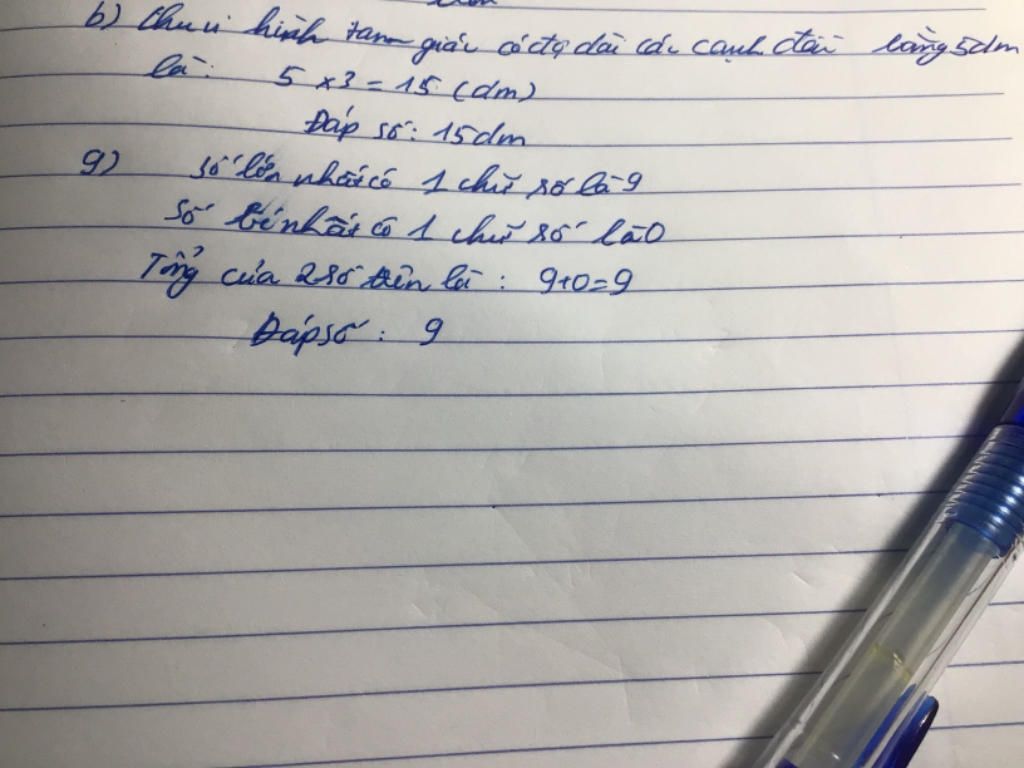 b) Chu vi hình tam giác có độ dài các cạnh đều bằng 5dm
là: 5 x 3 = 15 (dm)
Đáp số: 15dm
9) số lớn nhất có 1 chữ số là 9
Số bé nhất có 1 chữ số là 0
Tổng của 2 số trên là: 9+0=9
Đáp số: 9